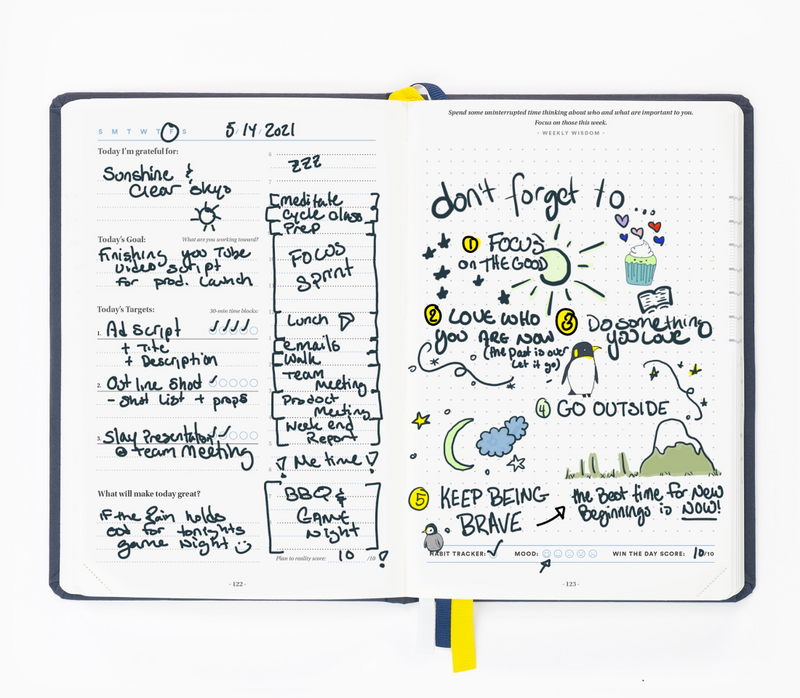 S M T W T F S
5/14/2021
Today I'm grateful for:
Sunshine &
Clear Skys
Today's Goal:
What are you working toward?
Finishing you Tube
video script
for prod. Launch
Today's Targets:
30-min time blocks:
1. Ad script
+ Title
+ Description
2. Out line Shoot
- Shot List + props
3. Slay Presentation
@ team Meeting
What will make today great?
if the Rain holds
out for tonights
game night
6
zzz
7
meditate
Cycle Class
Prep
Focus
Sprint
Lunch
emails
Walk
Team
meeting
Product
Meeting
Week end
Report
Me time
BBQ &
Game
Night
Plan to reality score: 10 /10 !
- 122 -
Spend some uninterrupted time thinking about who and what are important to you.
Focus on those this week.
- WEEKLY WISDOM -
don't forget to...
1 FOCUS
on THE GOOD
2 LOVE WHO
you ARE NOW
(the past is over
Let it go)
3 Do something
you Love
4 GO OUTSIDE
5 KEEP BEING
BRAVE
the Best time for New
Beginnings is NOW!
HABIT TRACKER:
MOOD:
WIN THE DAY SCORE: 10/10
- 123 -